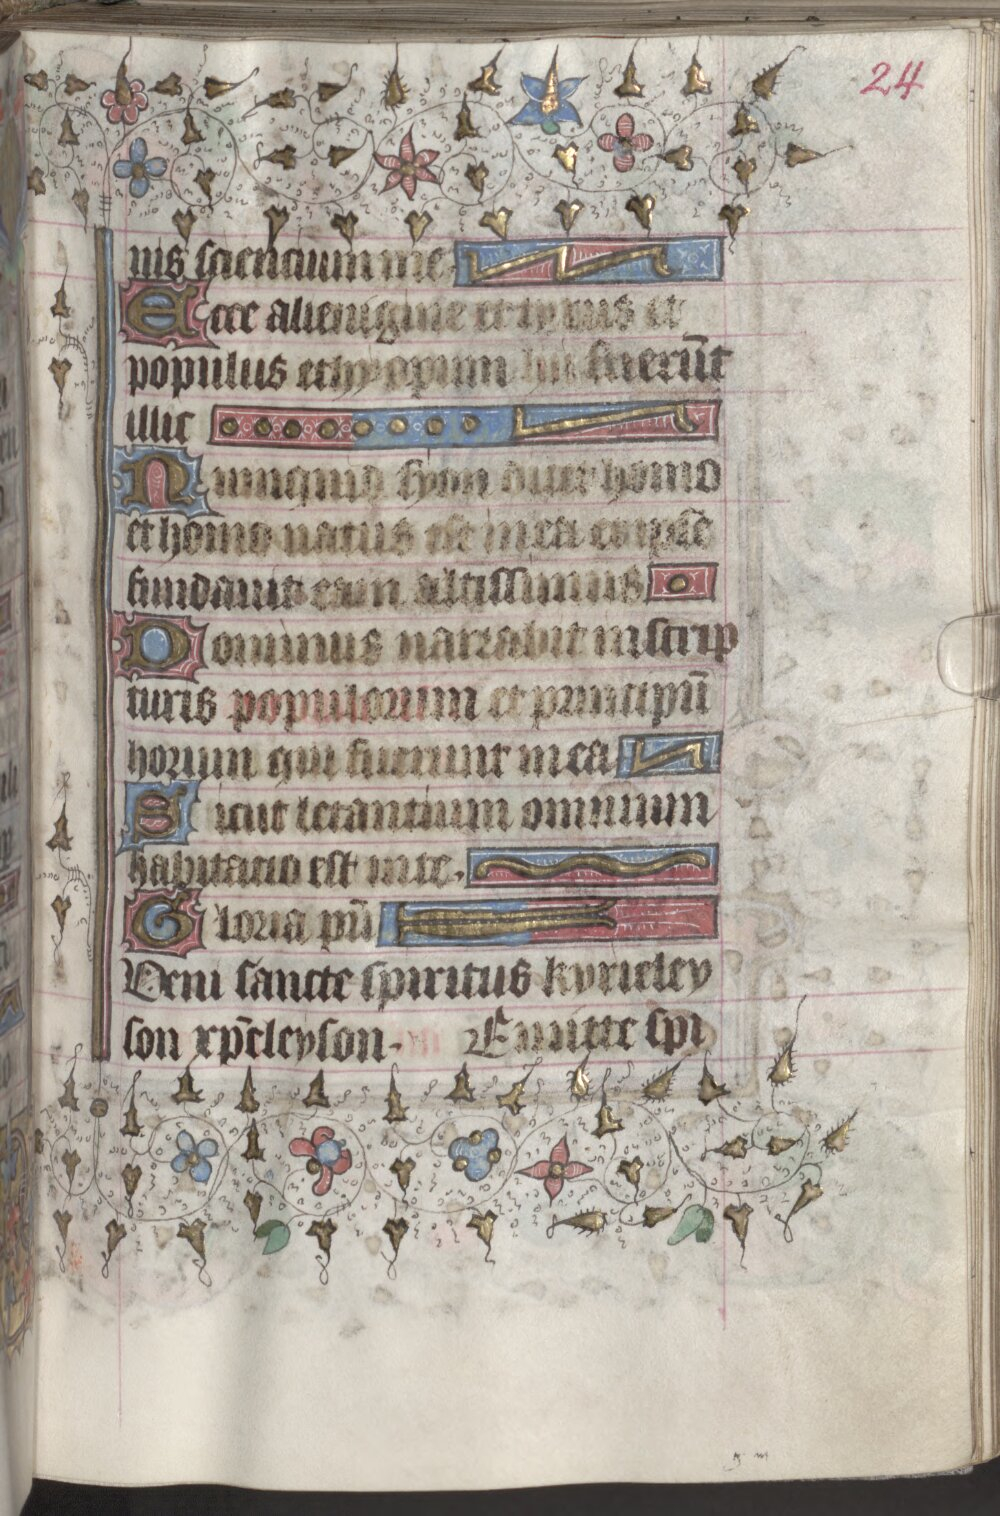 24
nis sciencium me.
Ecce alienigine et tyrus et
populus ethyopum hii fuerūt
illic
Nunquid syon dicet homo
et homo natus est in ea et ipse
fundavit eam altissimus
Dominus narrabit in scrip
turis populorum et principū
horum qui fuerunt in ea
Sicut letantium omnium
habitatio est in te.
Gloria pr̄i
Veni sancte spiritus kyrieley
son xp̄eleyson. Emitte spi